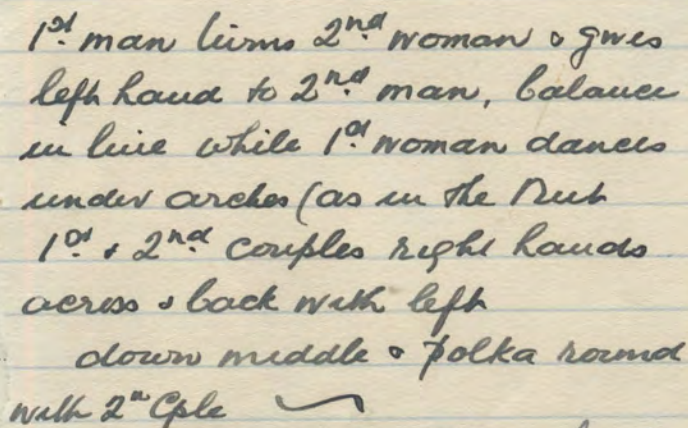 1st man turns 2nd woman & gives
left hand to 2nd man, balance
in line while 1st woman dances
under arches (as in the Nut
1st & 2nd couples right hands
across & back with left
down middle & polka round
with 2n Cple